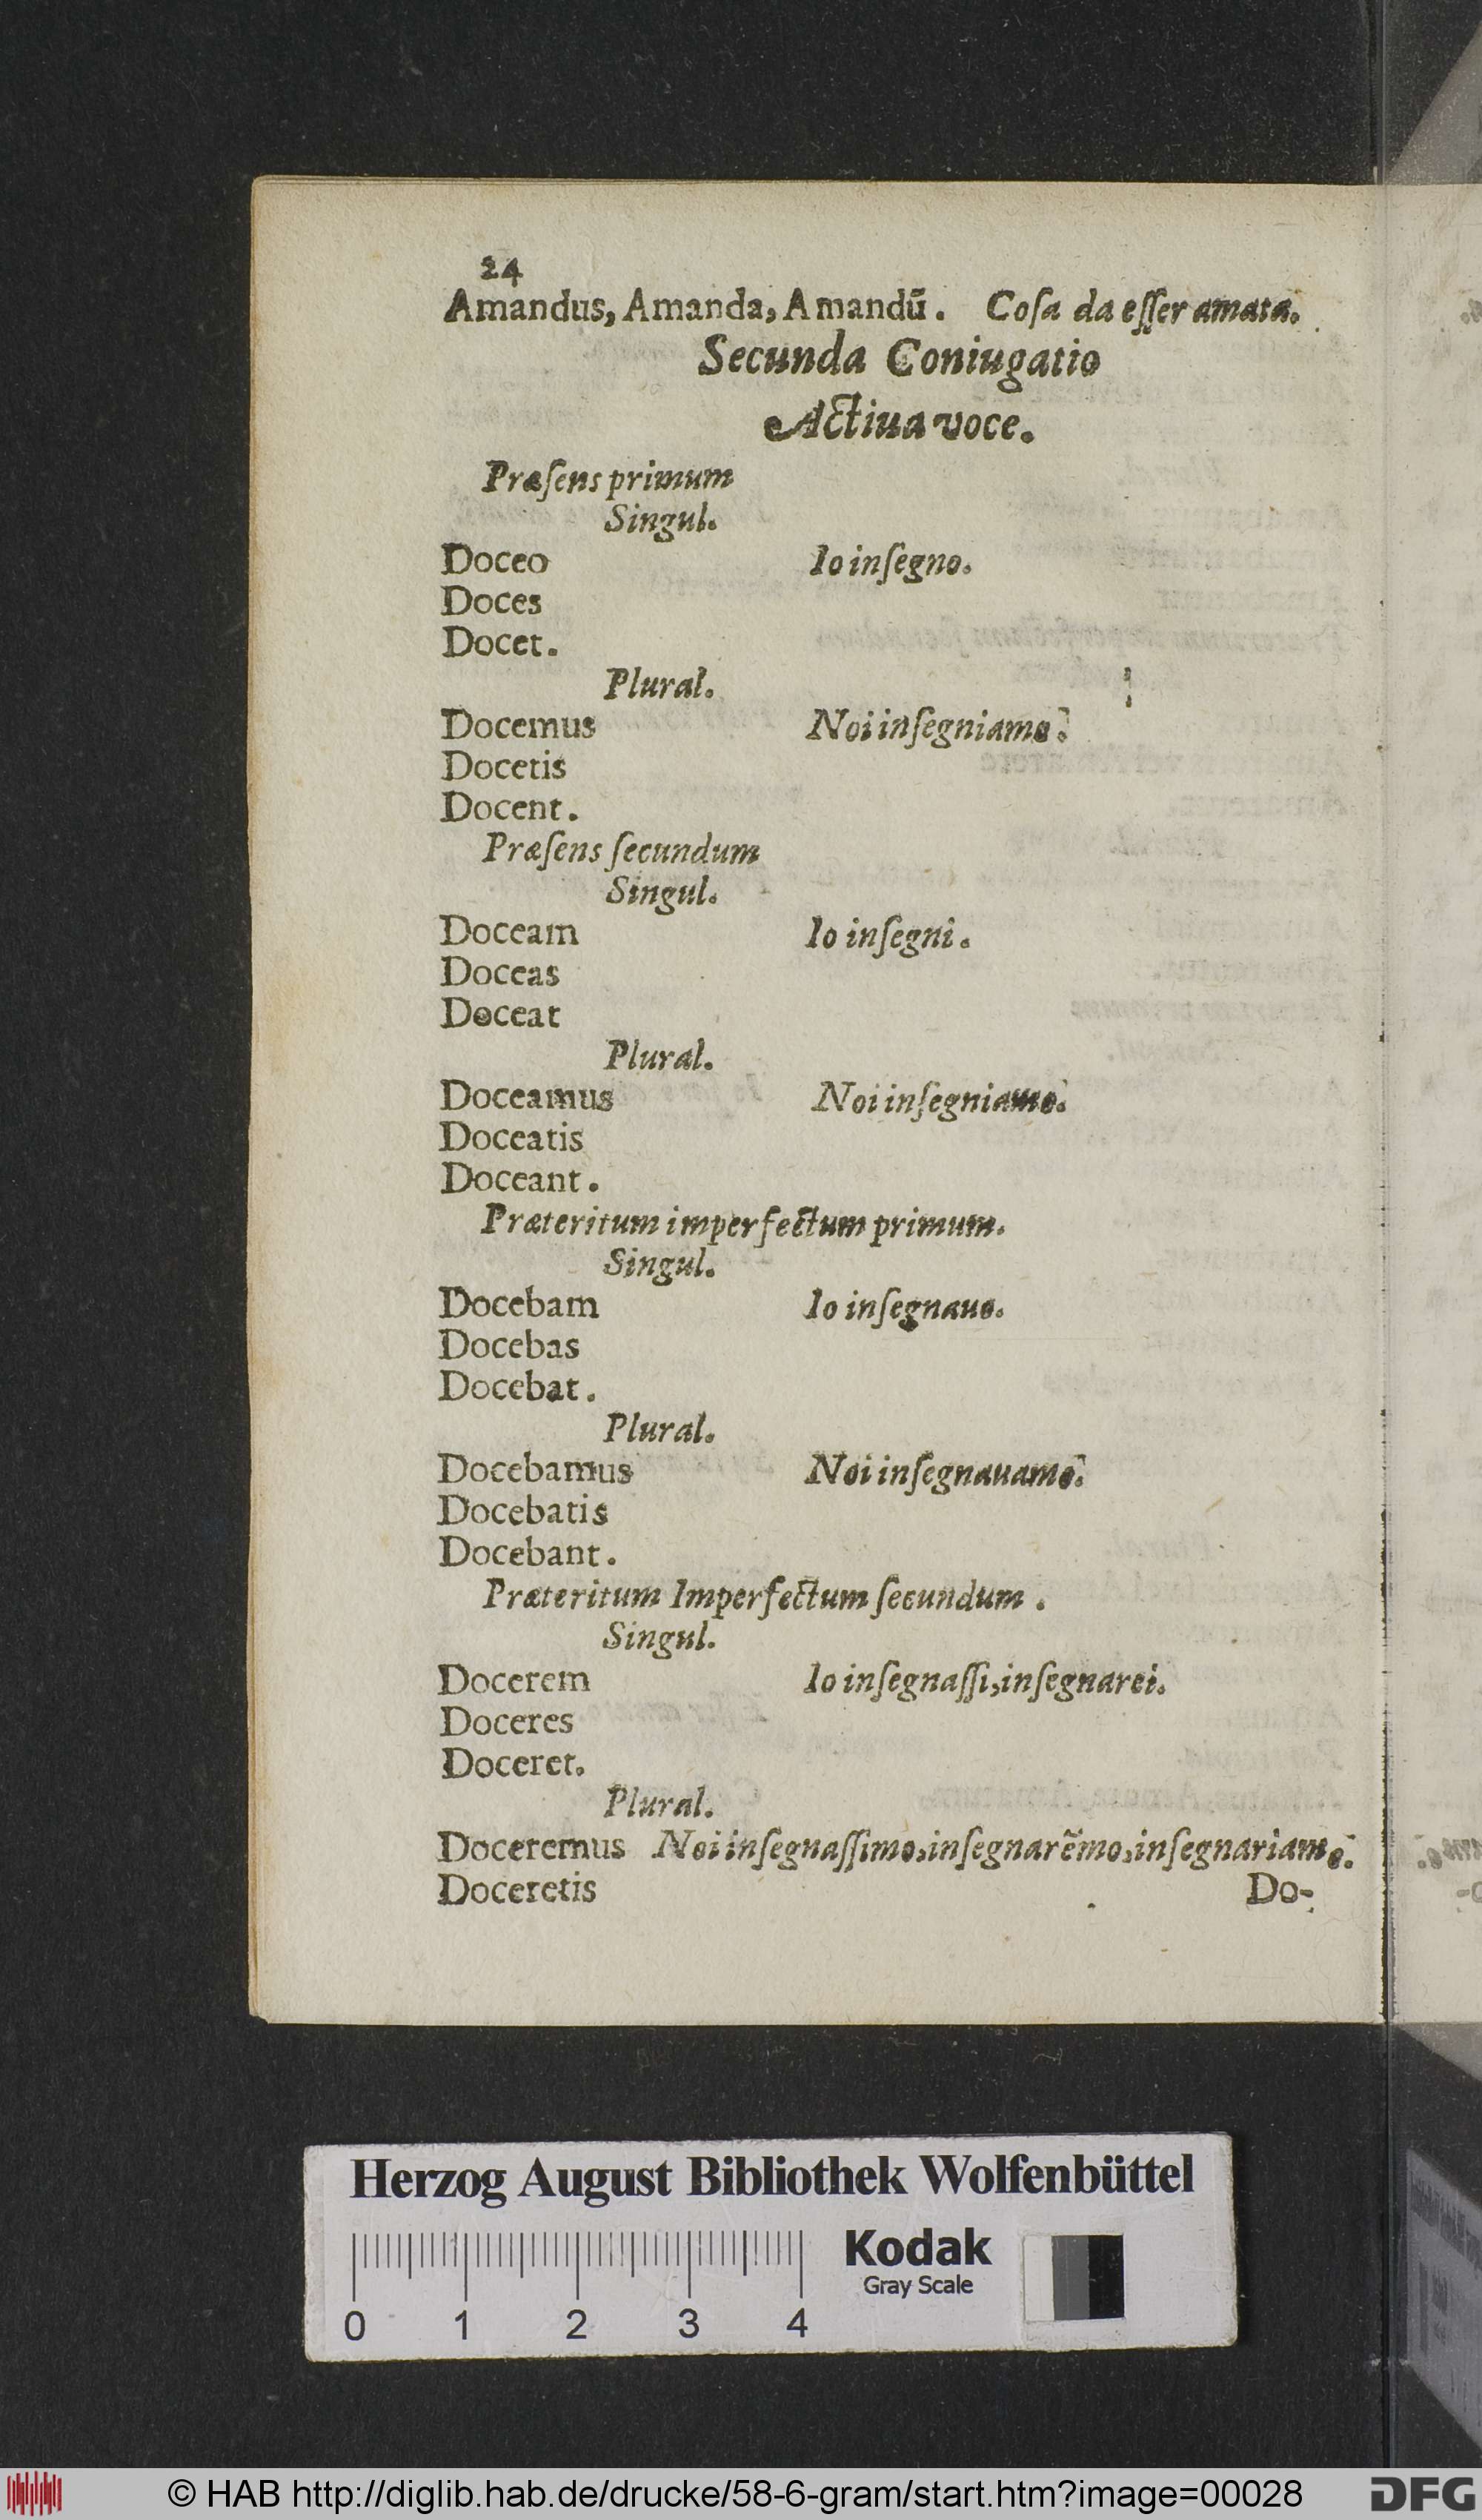 24
Amandus, Amanda, Amandū. Coſa da eſſer amata.
Secunda Coniugatio
Actiua voce.
Præſens primum
Singul.
Doceo Io inſegno.
Doces
Docet.
Plural.
Docemus Noi inſegniamo.
Docetis
Docent.
Præſens ſecundum
Singul.
Doceam Io inſegni.
Doceas
Doceat
Plural.
Doceamus Noi inſegniamo.
Doceatis
Doceant.
Præteritum imperfectum primum.
Singul.
Docebam Io inſegnauo.
Docebas
Docebat.
Plural.
Docebamus Noi inſegnauamo.
Docebatis
Docebant.
Præteritum Imperfectum ſecundum.
Singul.
Docerem Io inſegnaſſi, inſegnarei.
Doceres
Doceret.
Plural.
Doceremus Noi inſegnaſſimo, inſegnarẽmo, inſegnariamo.
Doceretis Do-
Herzog August Bibliothek Wolfenbüttel
Kodak
Gray Scale
0 1 2 3 4
© HAB http://diglib.hab.de/drucke/58-6-gram/start.htm?image=00028
DFG